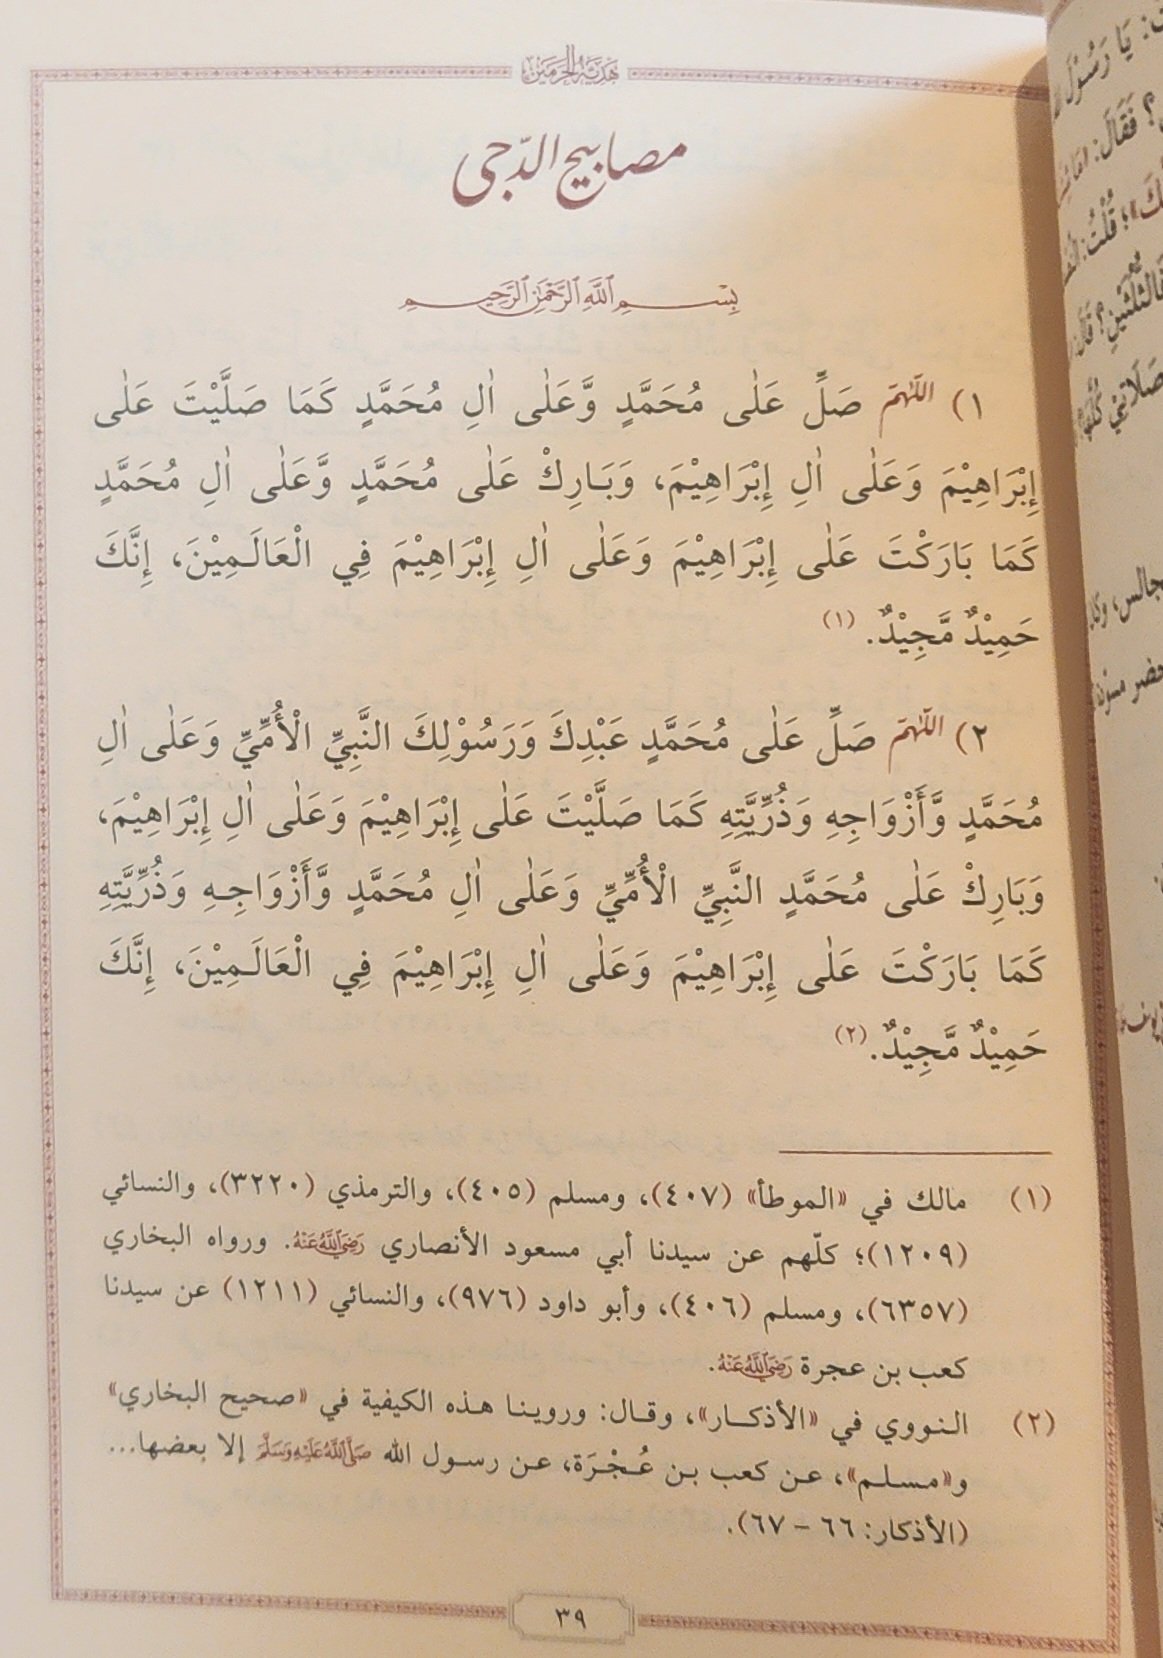 هَدِيَّةُ الْحَرَمَيْن
مصابيح الدّجى
بِسْمِ ٱللَّهِ ٱلرَّحْمَٰنِ ٱلرَّحِيمِ
١) اللّٰهُمَّ صَلِّ عَلٰى مُحَمَّدٍ وَّعَلٰى اٰلِ مُحَمَّدٍ كَمَا صَلَّيْتَ عَلٰى
إِبْرَاهِيْمَ وَعَلٰى اٰلِ إِبْرَاهِيْمَ، وَبَارِكْ عَلٰى مُحَمَّدٍ وَّعَلٰى اٰلِ مُحَمَّدٍ
كَمَا بَارَكْتَ عَلٰى إِبْرَاهِيْمَ وَعَلٰى اٰلِ إِبْرَاهِيْمَ فِي الْعَالَمِيْنَ، إِنَّكَ
حَمِيْدٌ مَّجِيْدٌ. (١)
٢) اللّٰهُمَّ صَلِّ عَلٰى مُحَمَّدٍ عَبْدِكَ وَرَسُوْلِكَ النَّبِيِّ الْأُمِّيِّ وَعَلٰى اٰلِ
مُحَمَّدٍ وَّأَزْوَاجِهِ وَذُرِّيَّتِهِ كَمَا صَلَّيْتَ عَلٰى إِبْرَاهِيْمَ وَعَلٰى اٰلِ إِبْرَاهِيْمَ،
وَبَارِكْ عَلٰى مُحَمَّدٍ النَّبِيِّ الْأُمِّيِّ وَعَلٰى اٰلِ مُحَمَّدٍ وَّأَزْوَاجِهِ وَذُرِّيَّتِهِ
كَمَا بَارَكْتَ عَلٰى إِبْرَاهِيْمَ وَعَلٰى اٰلِ إِبْرَاهِيْمَ فِي الْعَالَمِيْنَ، إِنَّكَ
حَمِيْدٌ مَّجِيْدٌ. (٢)
(١) مالك في «الموطأ» (٤٠٧)، ومسلم (٤٠٥)، والترمذي (٣٢٢٠)، والنسائي
(١٢٠٩)؛ كلّهم عن سيدنا أبي مسعود الأنصاري رَضِيَ ٱللَّهُ عَنْهُ. ورواه البخاري
(٦٣٥٧)، ومسلم (٤٠٦)، وأبو داود (٩٧٦)، والنسائي (١٢١١) عن سيدنا
كعب بن عجرة رَضِيَ ٱللَّهُ عَنْهُ.
(٢) النووي في «الأذكار»، وقال: وروينا هذه الكيفية في «صحيح البخاري»
و«مسلم»، عن كعب بن عُجْرَة، عن رسول الله صَلَّى ٱللَّهُ عَلَيْهِ وَسَلَّمَ إلا بعضها...
(الأذكار: ٦٦ – ٦٧).
٣٩
يَا رَسُوْلَ
؟ فَقَالَ:
قُلْتُ:
صَلَاتِيْ كُلَّهَا